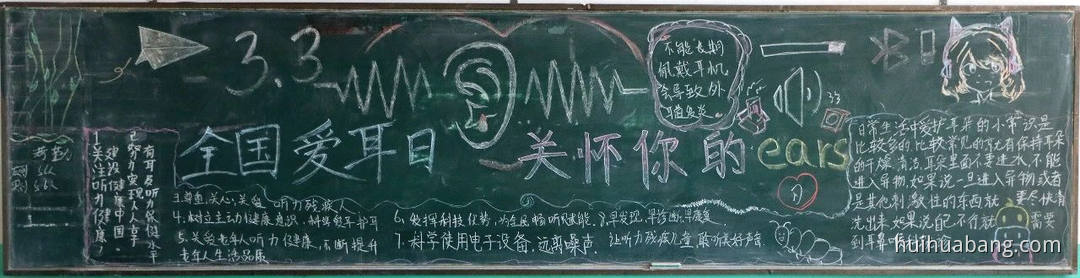 3.3
不能长期
佩戴耳机
会导致外
耳道发炎
全国爱耳日
关怀你的ears
考勤
关注听力健康
建设健康中国
3.尊重、关心、关爱 听力残疾人
4.树立主动健康意识，科学爱耳护耳
5.关爱老年人听力健康，不断提升
老年人生活品质
6.发挥科技优势，为全民畅听赋能
7.科学使用电子设备、远离噪声
8.早发现、早诊断、早康复
让听力残疾儿童敢动美好声音
日常生活中爱护耳朵的小常识是
比较多的，比较常见的就有保持耳朵
的干燥、清洁，耳朵里面不要进水，不能
进入异物，如果说一旦进入异物，或者
是其他刺激性的东西就 要尽快清
洗出来，如果说自己不行就 需要
到耳鼻
huihuabang.com